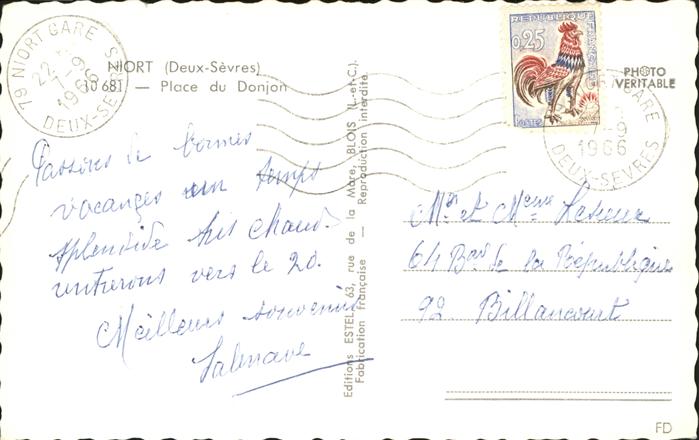 79 NIORT GARE
22 H
7-9
1966
DEUX-SEVRES
NIORT (Deux-Sèvres)
10 681 — Place du Donjon
REPUBLIQUE FRANCAISE
0,25
POSTES
PHOTO
VERITABLE
GARE
7-9
1966
DEUX-SEVRES
Passons de bonnes
vacances un temps
splendide très chaud
rentrerons vers le 20.
Meilleurs souvenirs
Editions ESTEL, 63, rue de la Mare, BLOIS (L.-et-C.)
Fabrication Française — Reproduction interdite
Mr et Mme
64 Bd de la République
92 Billancourt
FD